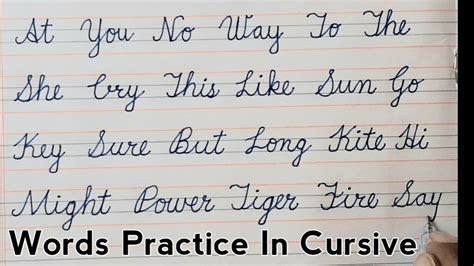 At You No Way To The
She Cry This Like Sun Go
Key Sure But Long Kite Hi
Might Power Tiger Fire Say
Words Practice In Cursive